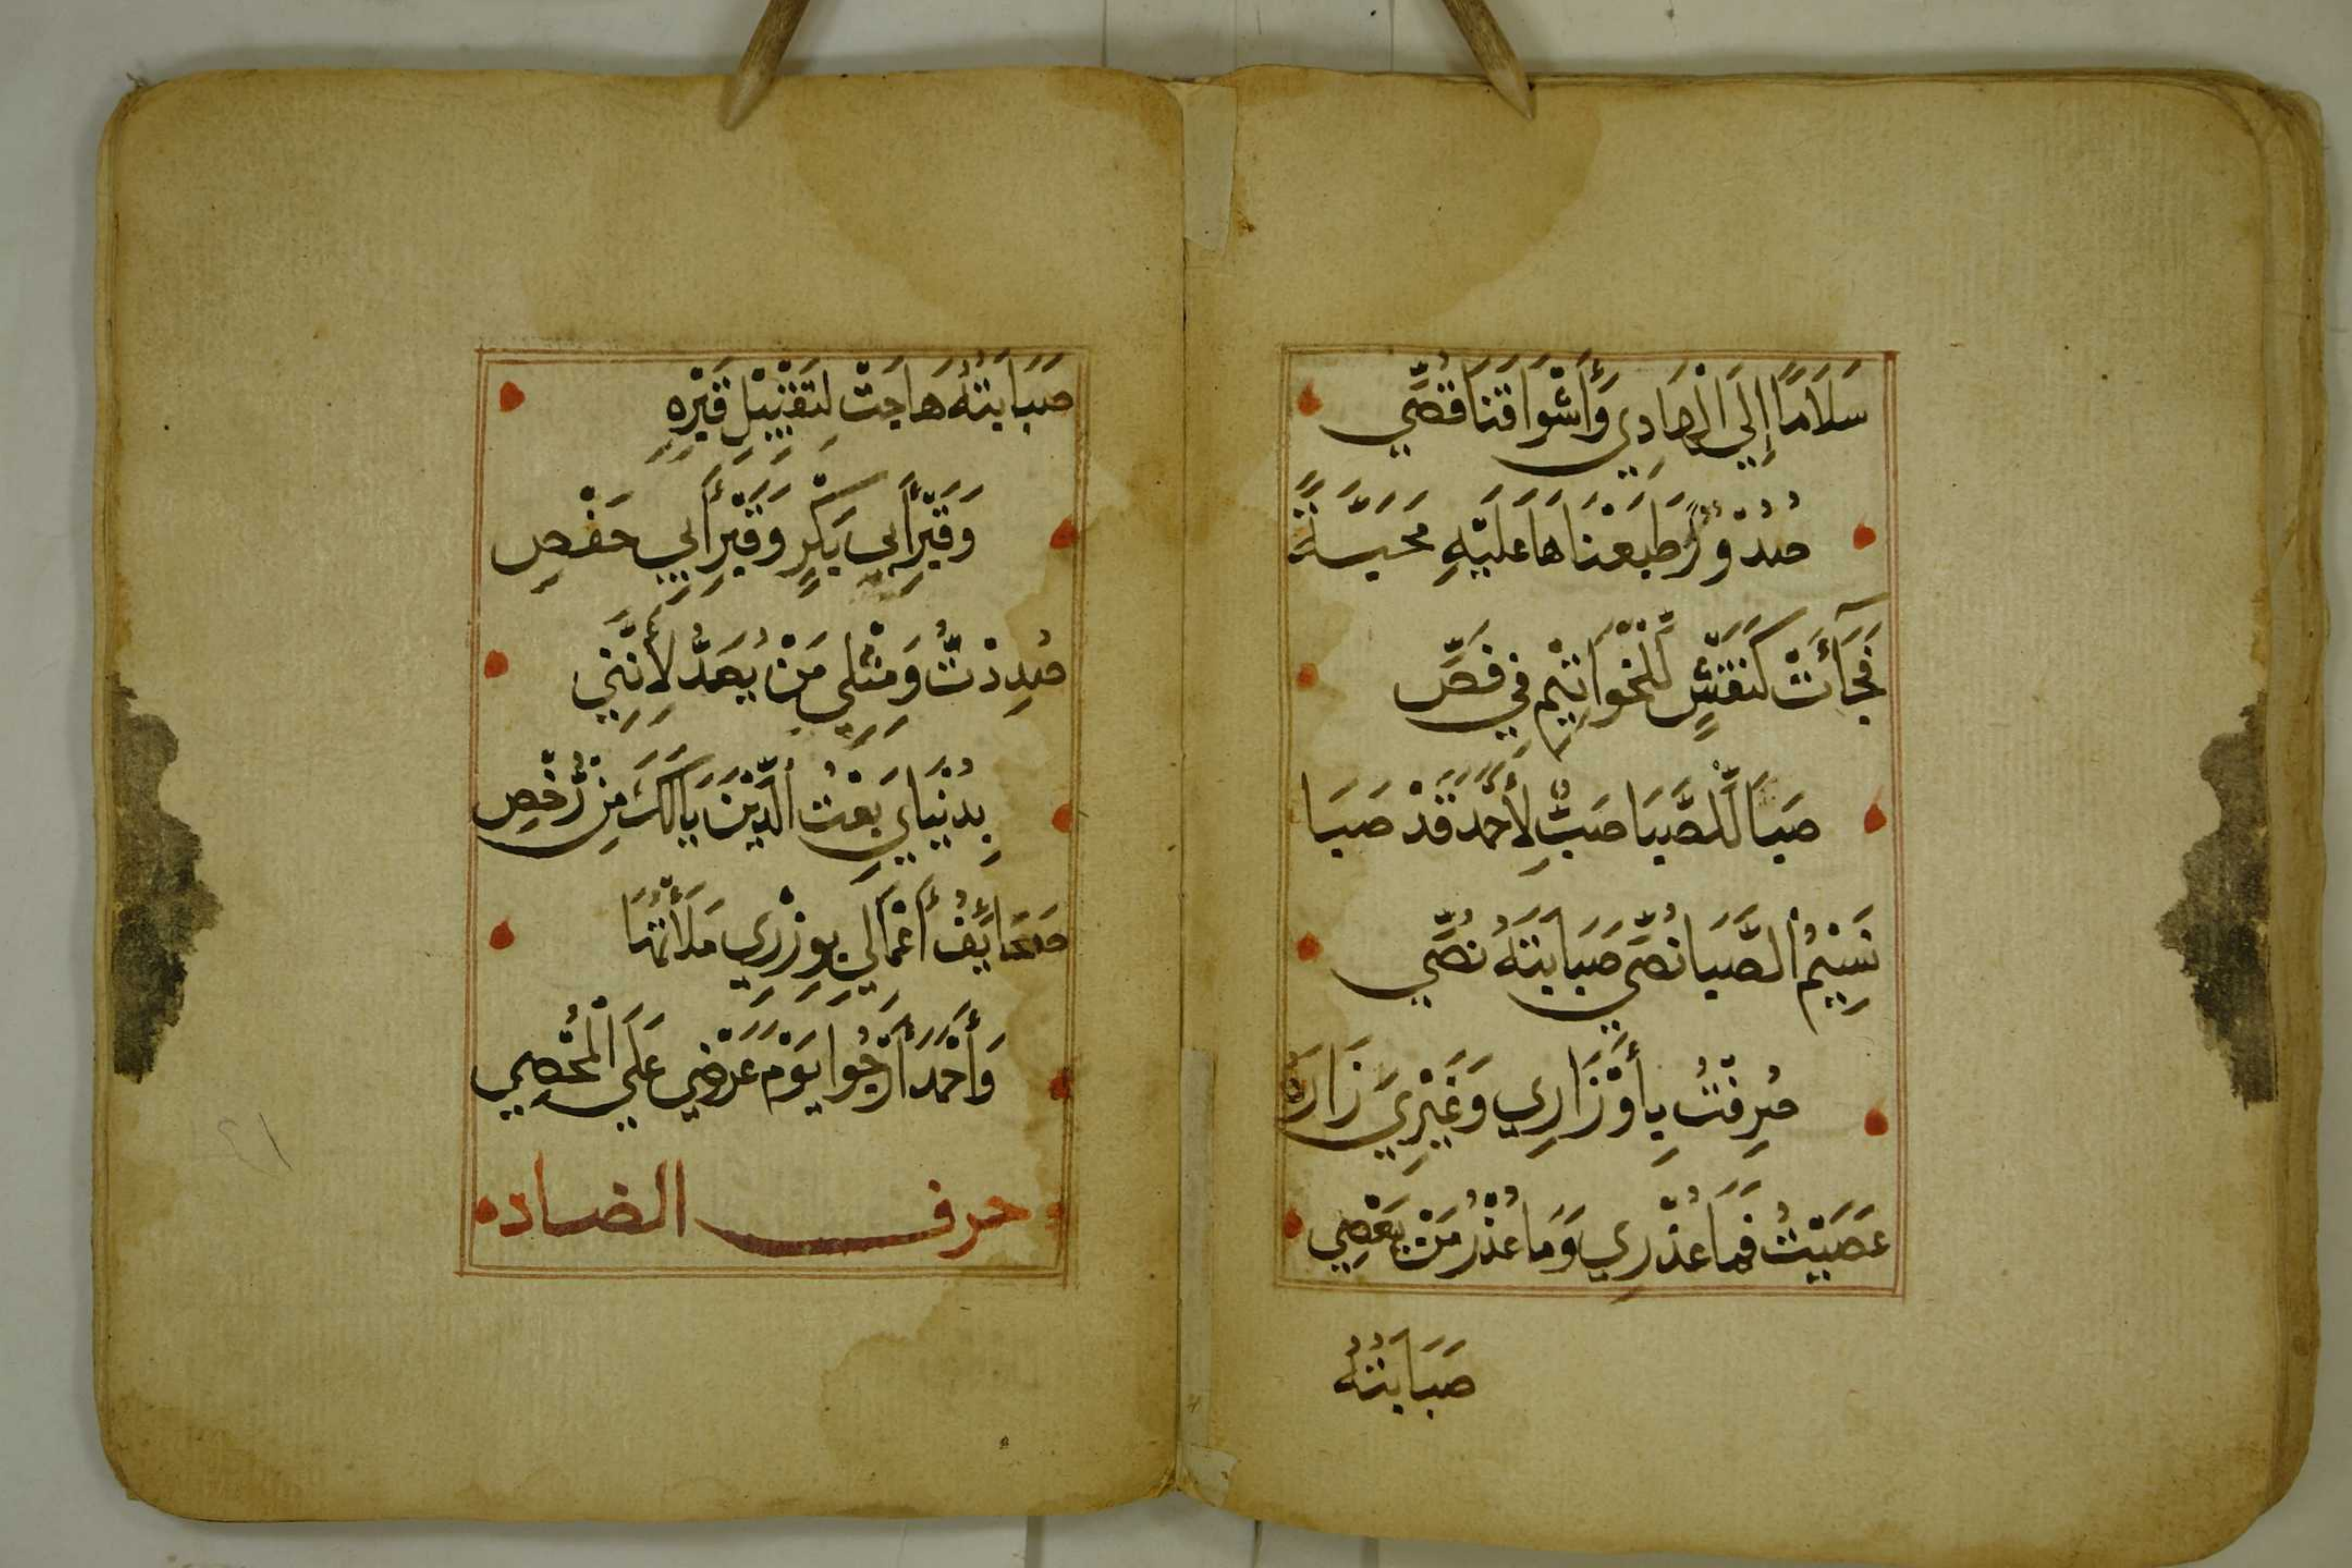 سَلَامًا إِلَى الْهَادِي وَأَشْوَاقَنَا قُصِّي
صُدُوْرٌ طَبَعْنَاهَا عَلَيْهِ مَحَبَّةً
فَجَآئَتْ كَنَقْشٍ لِّلْخَوَاتِيْمِ فِي فَصِّ
صَبَا لِلصَّبَا صَبٌّ لِأَحْمَدَ قَدْ صَبَا
نَسِيْمُ الصَّبَا نُصِّي صَبَابَتَهُ نُصِّي
صُرِفْتُ بِأَوْزَارِي وَغَيْرِيَ زَارَهُ
عَصَيْتُ فَمَا عُذْرِي وَمَا عُذْرُ مَنْ يَعْصِي
صَبَابَتُهُ
صَبَابَتُهُ هَاجَتْ لِتَقْبِيْلِ قَبْرِهِ
وَقَبْرِ أَبِي بَكْرٍ وَقَبْرِ أَبِي حَفْصِ
صُدِدْتُّ وَمِثْلِي مَنْ يُصَدُّ لِأَنَّنِي
بِدُنْيَايَ بِعْتُ الدِّيْنَ يَالَكَ مِنْ رُّخْصِ
صَحَائِفُ أَعْمَالِي بِوِزْرِي مَلَأْتُهَا
وَأَحْمَدَ أَرْجُوا يَوْمَ عَرْضِي عَلَى الْمُحْصِي
حرف الضاد